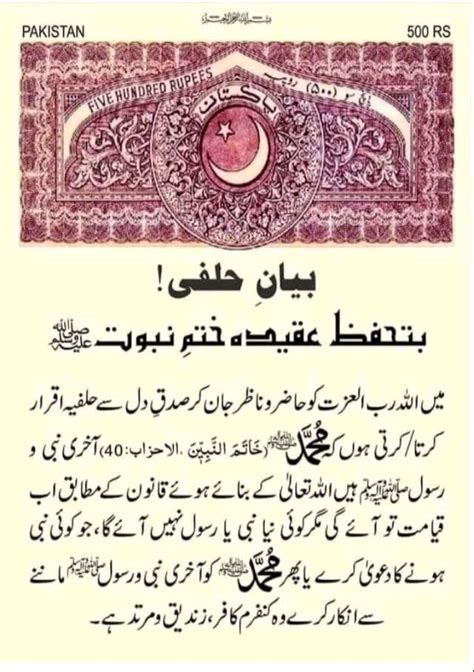 بسم اللہ الرحمن الرحیم
PAKISTAN 500 RS
FIVE HUNDRED RUPEES پانچ سو (۵۰۰) روپیہ
پاکستان
بیانِ حلفی!
بتحفظ عقیدہ ختمِ نبوت ﷺ
میں اللہ رب العزت کو حاضر و ناظر جان کر صدقِ دل سے حلفیہ اقرار
کرتا/کرتی ہوں کہ مُحَمَّد ﷺ (خَاتَمَ النَّبِيّنَ ۔الاحزاب:40) آخری نبی و
رسول ﷺ ہیں اللہ تعالیٰ کے بنائے ہوئے قانون کے مطابق اب
قیامت تو آئے گی مگر کوئی نیا نبی یا رسول نہیں آئے گا، جو کوئی نبی
ہونے کا دعویٰ کرے یا پھر مُحَمَّد ﷺ کو آخری نبی و رسول ﷺ ماننے
سے انکار کرے وہ کنفرم کافر، زندیق و مرتد ہے۔